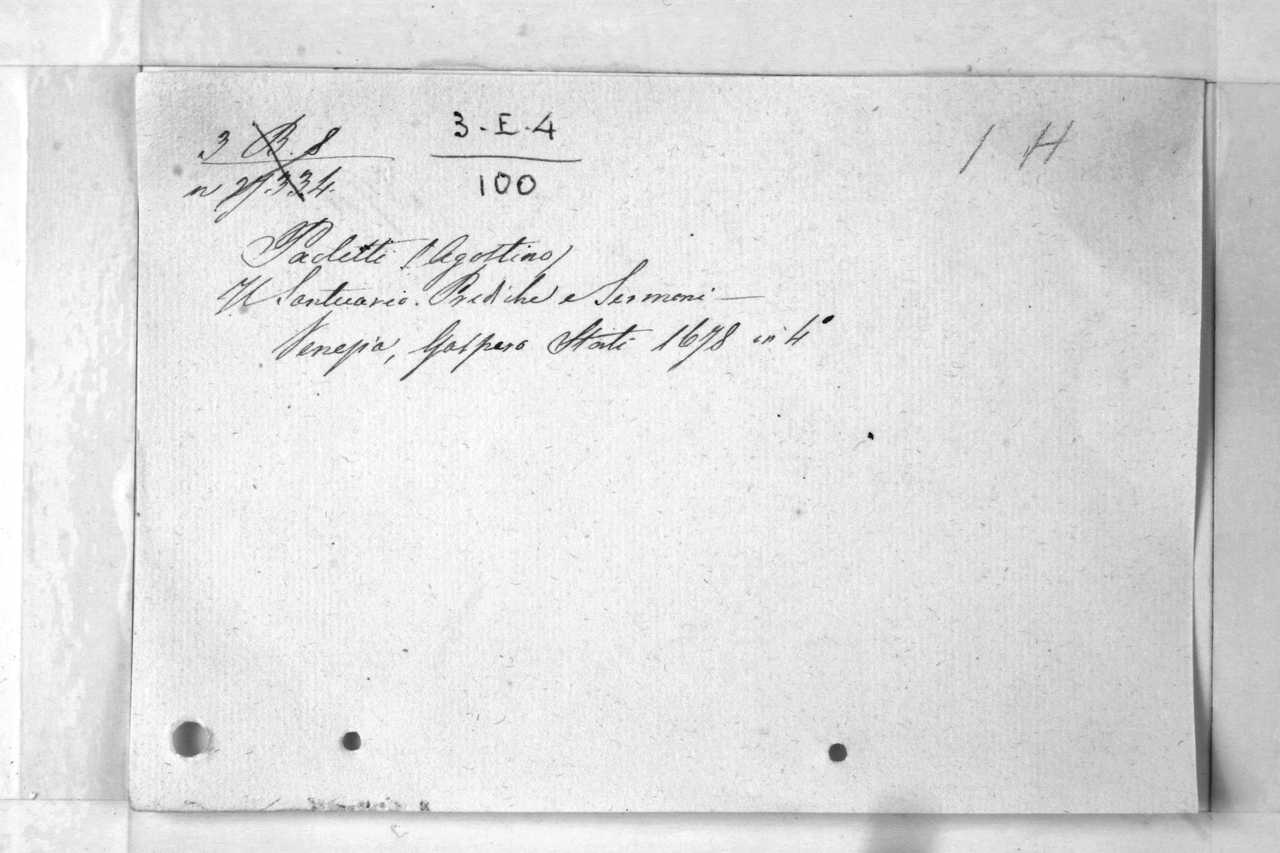 3 B. 8
n 27.334.
3-E-4
100
1 H
Paoletti (Agostino)
Il Santuario. Prediche e Sermoni —
Venezia, Gasparo Storti 1678 in 4°